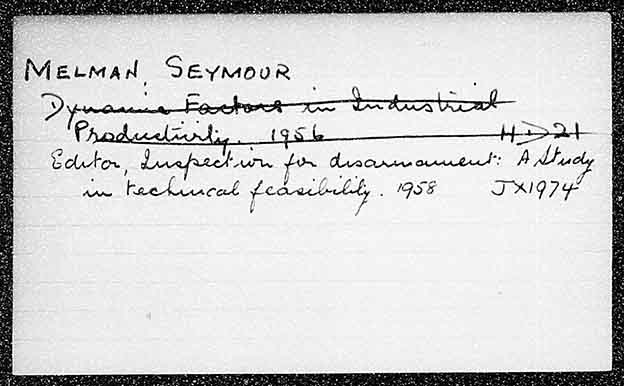 MELMAN, SEYMOUR
Dynamic Factors in Industrial
Productivity. 1956 HD21
Editor, Inspection for disarmament: A Study
in technical feasibility. 1958 JX1974